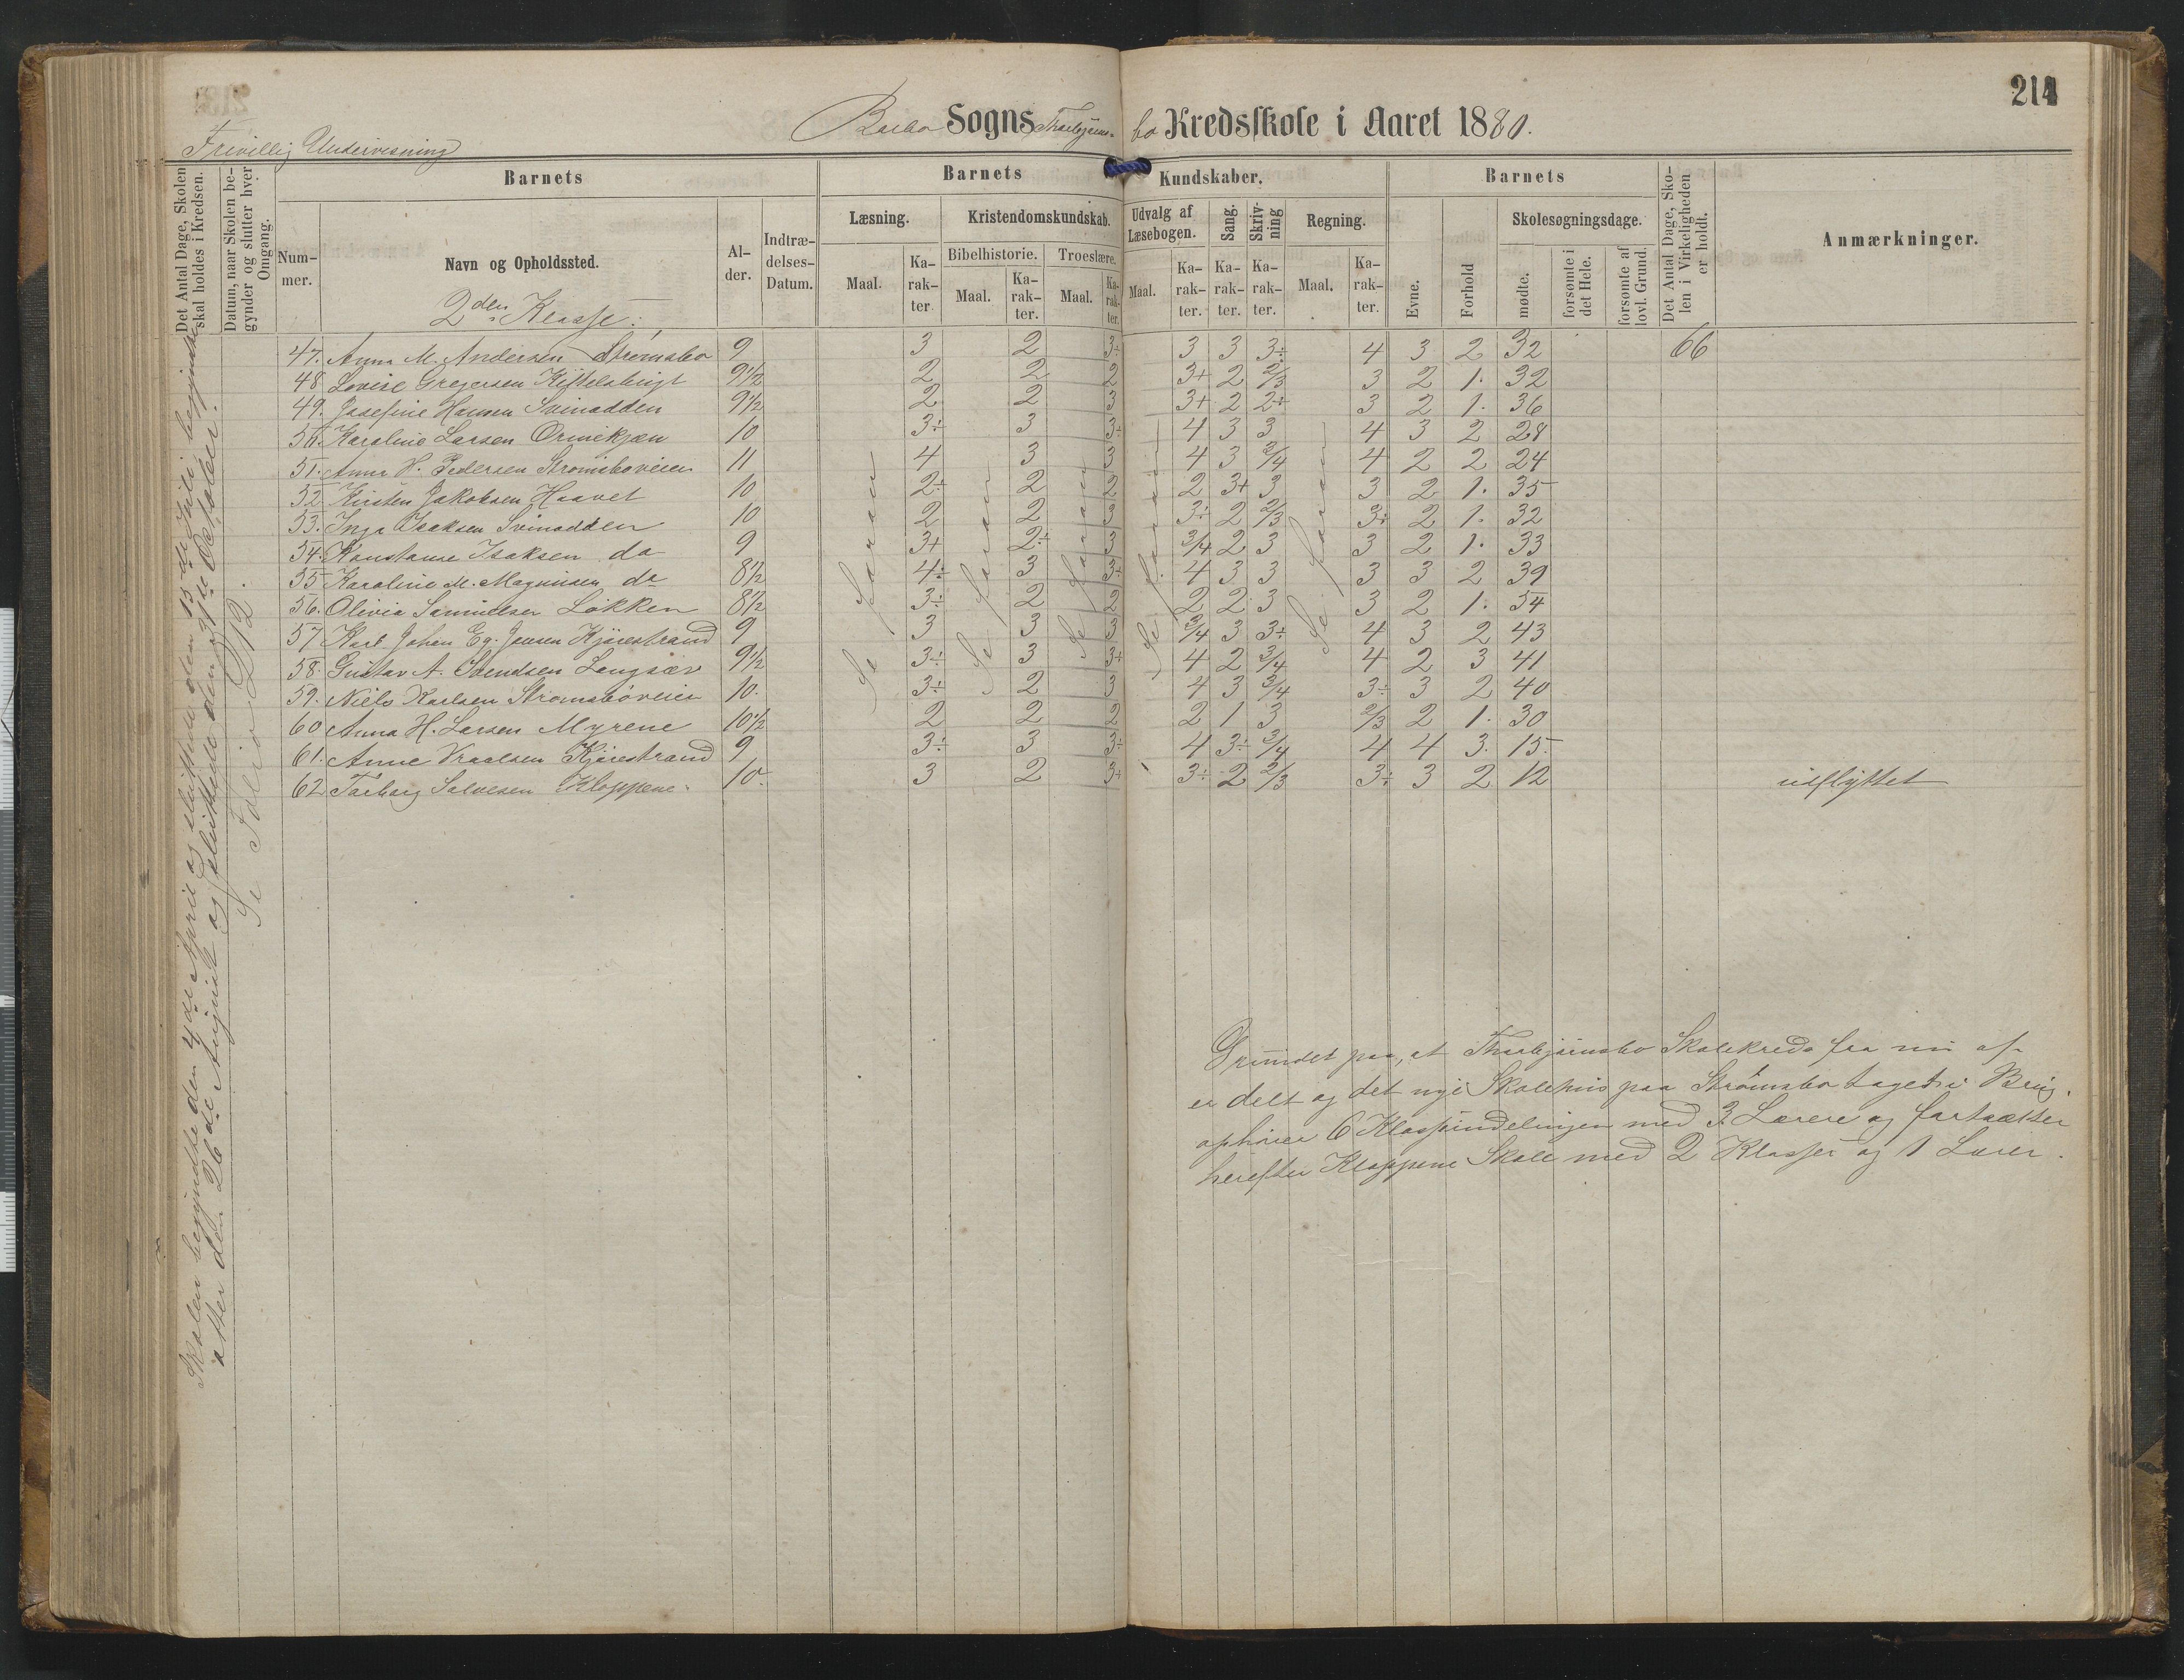 214
Barbo Sogns Thorbjørns- bo Kredsskole i Aaret 1880.
Frivillig Undervisning
Det Antal Dage, Skolen skal holdes i Kredsen.
Datum, naar Skolen begynder og slutter hver Omgang.
Barnets
Nummer.
Navn og Opholdssted.
Alder.
Indtrædelses-Datum.
Barnets Kundskaber.
Læsning.
Maal.
Karakter.
Kristendomskundskab.
Bibelhistorie.
Maal.
Karakter.
Troeslære.
Maal.
Karakter.
Udvalg af Læsebogen.
Maal.
Karakter.
Sang.
Karakter.
Skrivning
Karakter.
Regning.
Maal.
Karakter.
Barnets
Evne.
Forhold
Skolesøgningsdage.
mødte.
forsømte i det Hele.
forsømte af lovl. Grund.
Det Antal Dage, Skolen i Virkeligheden er holdt.
Anmærkninger.
2den Klasse.
47. Anna M. Andersen Strømsbo 9 3 2 3÷ 3 3 3÷ 4 3 2 32 66
48 Lovise Gregersen Kittelsbugt 9 1/2 2 2 2 3+ 2 2/3 3 2 1. 32
49. Josefine Hansen Svinodden 9 1/2 2 2 3 3+ 2 2÷ 3 2 1. 36
50. Karoline Larsen Ormekjæn 10 3÷ 3 3÷ 4 3 3 4 3 2 28
51. Anna H. Pedersen Strømsboveien 11 4 3 3 4 3 3/4 4 2 2 24
52 Kirsten Jakobsen Haavet 10 2÷ 2 2 2 3+ 3 3 2 1. 35
53. Inga Isaksen Svinodden 10 2 2 3 3÷ 2 2/3 3÷ 2 1. 32
54. Konstanse Isaksen do 9 3+ 2÷ 3 3/4 2 3 3 2 1. 33
55 Karoline M. Magnusen do 8 1/2 4÷ 3 3÷ 4 3 3 3 3 2 39
56. Olivia Samuelsen Løkken 8 1/2 3÷ 2 2 2 2 3 3 2 1. 54
57 Karl Johan Eg. Jensen Kjærestrand 9 3 3 3 3/4 3 3÷ 4 3 2 43
58. Gustav A. Svendsen Langsæv 9 1/2 3÷ 3 3+ 4 2 3/4 4 2 3 41
59. Niels Karlsen Strømsbøveien 10. 3÷ 2 3 4 3 3/4 3÷ 3 2 40
60 Anna H. Larsen Myrene 10 1/2 2 2 2 2 1 3 2/3 2 1. 30
61. Anne Knudsen Kjærestrand 9 3÷ 3 3÷ 4 3÷ 3/4 4 4 3. 15.
62 Torborg Salvesen Kloppene. 10. 3 2 3+ 3÷ 2 2/3 3÷ 3 2 12 udflyttet
Se foran
Se foran
Se foran
Se foran
Se foran
Skolen begyndte den 4de April og sluttede den 15de Juli, begyndte
atter den 26de August og sluttede den 31te October.
Se Folio 212.
Grundet paa, at Thorbjørnsbo Skolekreds fra nu af
er delt og det nye Skolehus paa Strømsbo taget i Brug,
ophører 6 Klasseinddelingen med 3 Lærere og fortsætter
herefter Kloppene Skole med 2 Klasser og 1 Lærer.